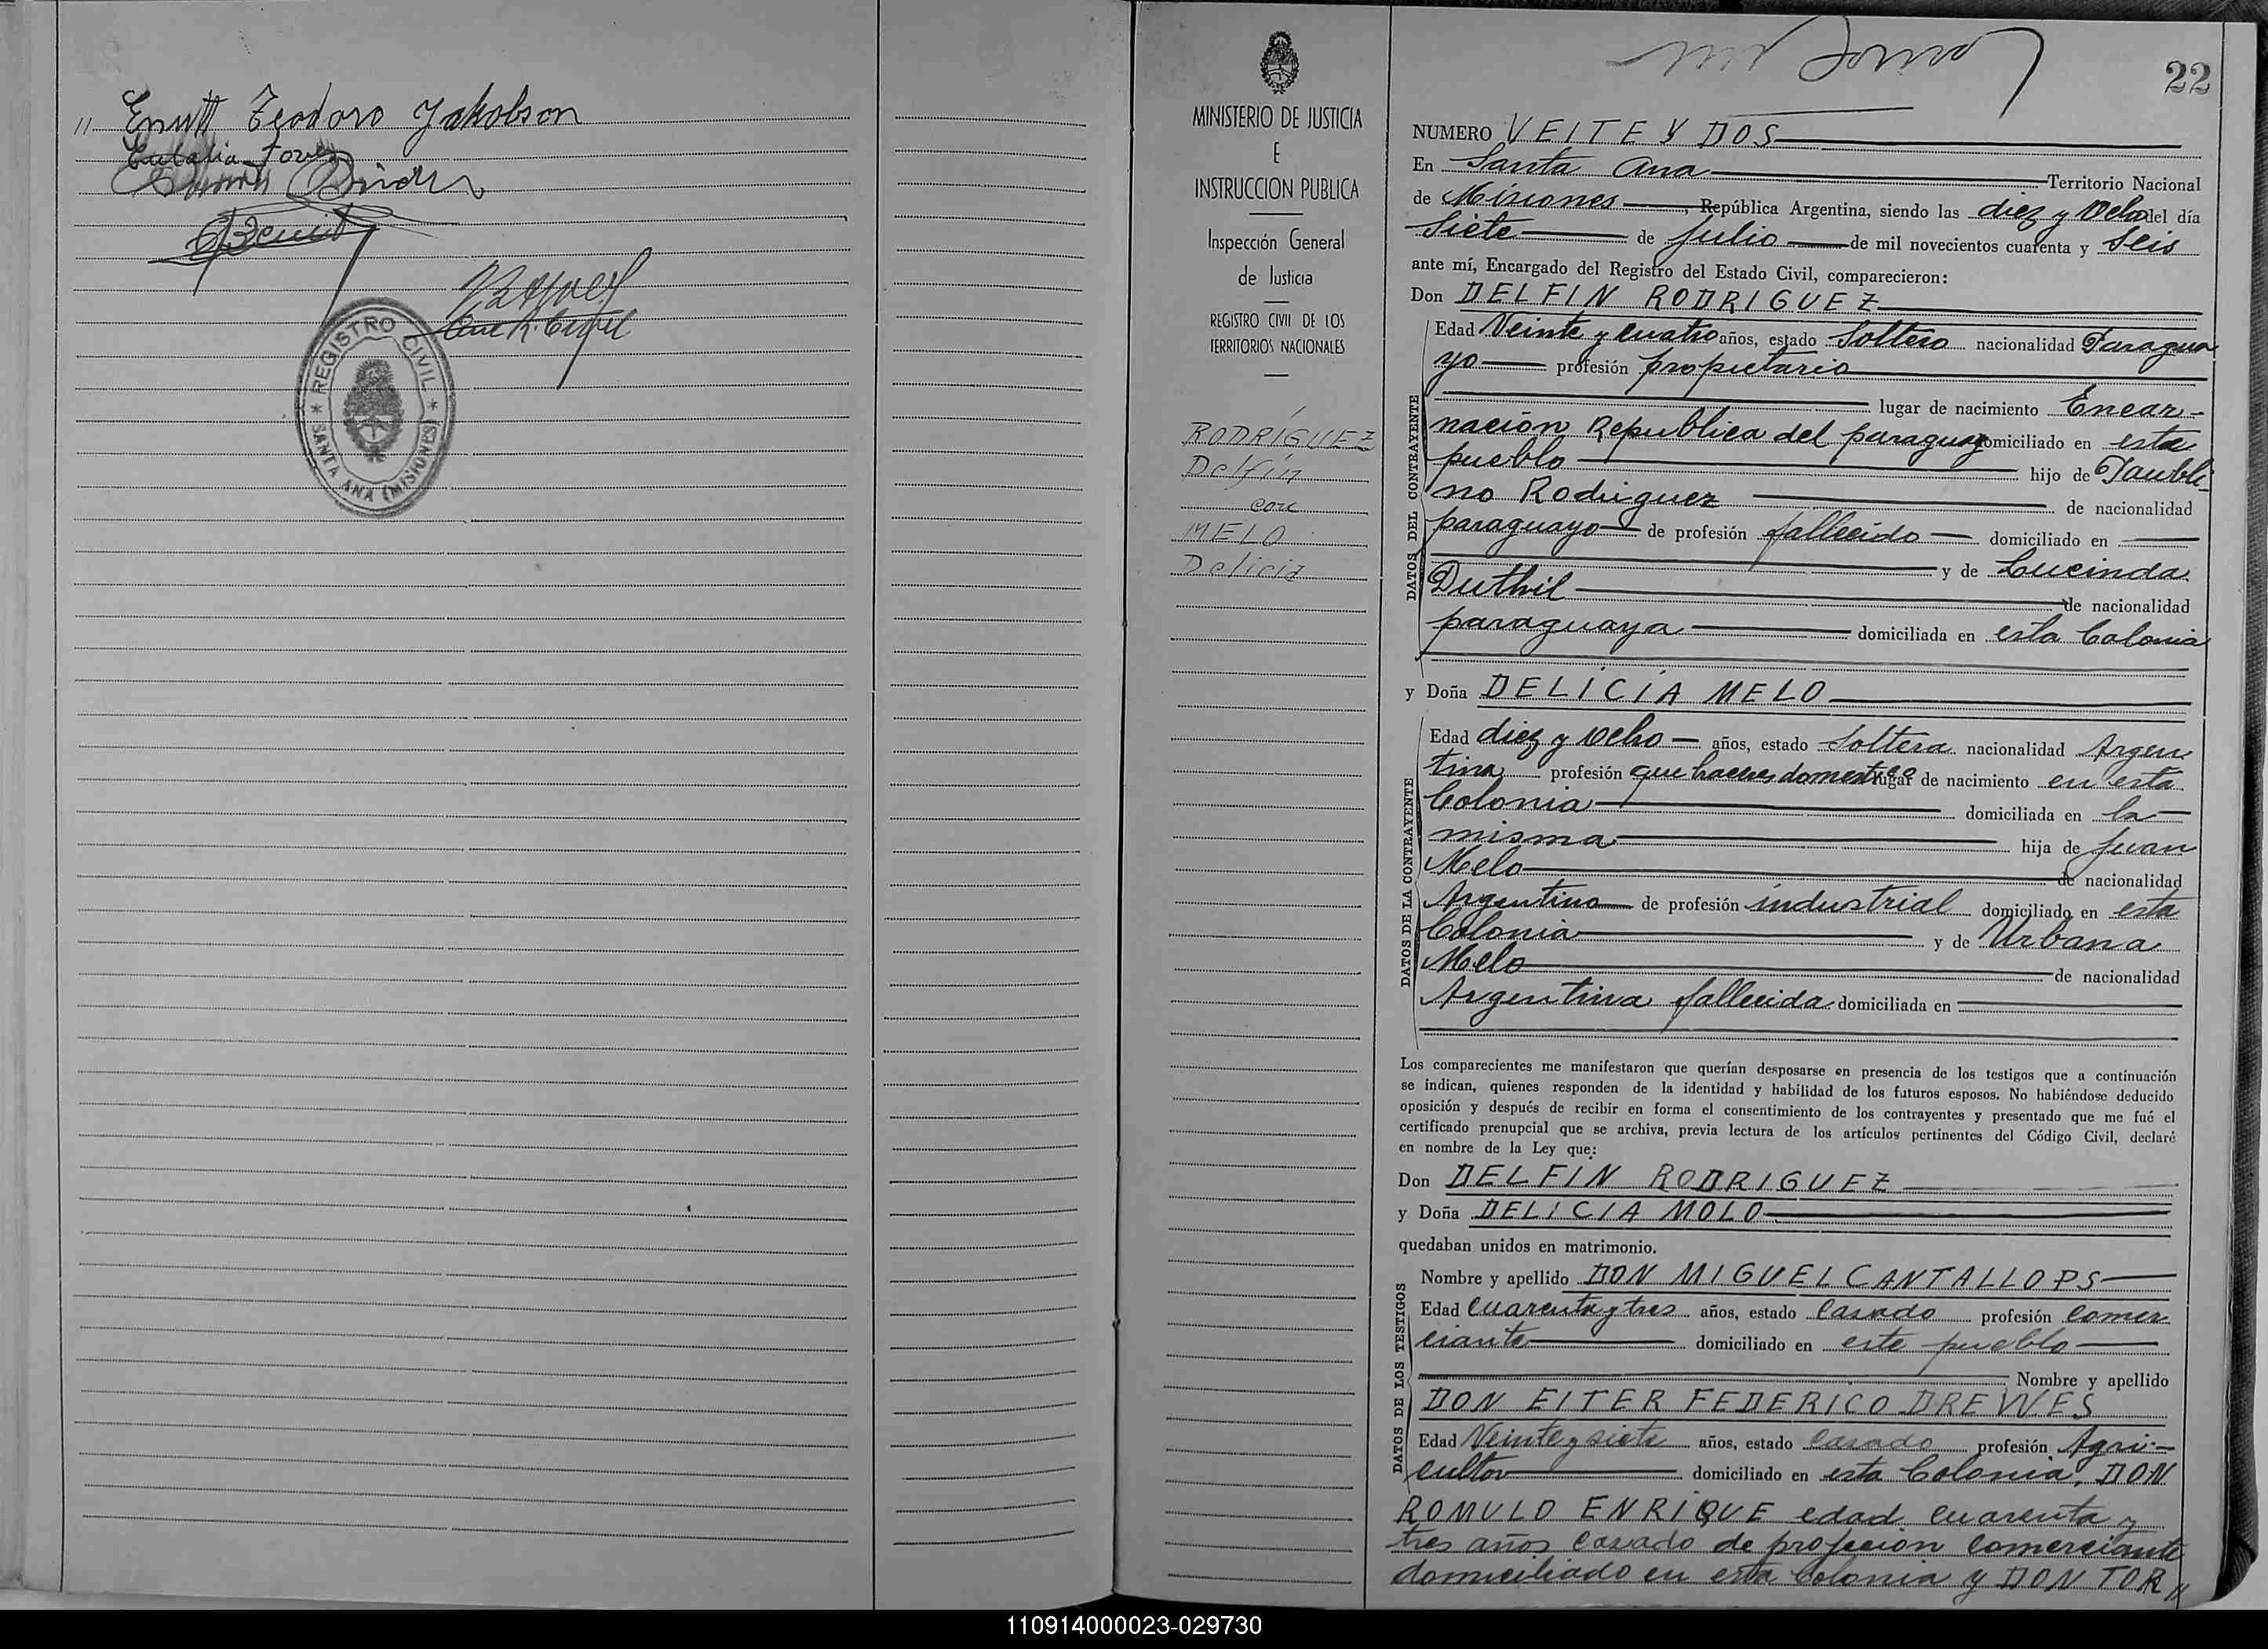 " Enutt Teodoro Jakobson
Eulalia
REGISTRO CIVIL
* SANTA ANA (MISIONES) *
MINISTERIO DE JUSTICIA
E
INSTRUCCION PUBLICA
Inspección General
de Justicia
REGISTRO CIVIL DE LOS
TERRITORIOS NACIONALES
RODRÍGUEZ
Delfín
con
MELO
Delicia
22
NUMERO VEITE Y DOS
En Santa Ana Territorio Nacional
de Misiones, República Argentina, siendo las diez y Ocho del día
Siete de Julio de mil novecientos cuarenta y Seis
ante mí, Encargado del Registro del Estado Civil, comparecieron:
Don DELFIN RODRIGUEZ
DATOS DEL CONTRAYENTE
Edad Veinte y cuatro años, estado Soltero nacionalidad Paragua
yo profesión propietario
lugar de nacimiento Encar-
nación Republica del paraguay domiciliado en este
pueblo hijo de Taubli
no Rodriguez de nacionalidad
paraguayo de profesión fallecido domiciliado en
y de Lucinda
Duthil de nacionalidad
paraguaya domiciliada en esta Colonia
y Doña DELÍCÍA MELO
DATOS DE LA CONTRAYENTE
Edad diez y Ocho años, estado Soltera nacionalidad Argen
tina profesión que haceres domestico lugar de nacimiento en esta
Colonia domiciliada en la
misma hija de Juan
Melo de nacionalidad
Argentino de profesión industrial domiciliado en esta
Colonia y de Urbana
Melo de nacionalidad
Argentina fallecida domiciliada en
Los comparecientes me manifestaron que querían desposarse en presencia de los testigos que a continuación
se indican, quienes responden de la identidad y habilidad de los futuros esposos. No habiéndose deducido
oposición y después de recibir en forma el consentimiento de los contrayentes y presentado que me fué el
certificado prenupcial que se archiva, previa lectura de los artículos pertinentes del Código Civil, declaré
en nombre de la Ley que:
Don DELFIN RODRIGUEZ
y Doña DELICIA MOLO
quedaban unidos en matrimonio.
DATOS DE LOS TESTIGOS
Nombre y apellido DON MIGUEL CANTALLOPS
Edad Cuarenta y tres años, estado Casado profesión Comer
ciante domiciliado en este pueblo
Nombre y apellido
DON EITER FEDERICO DREWES
Edad Veinte y siete años, estado Casado profesión Agri-
cultor domiciliado en esta Colonia, DON
ROMULO ENRIQUE edad cuarenta y
tres años casado de profecion comerciante
domiciliado en esta Colonia y DON TOR "
110914000023-029730